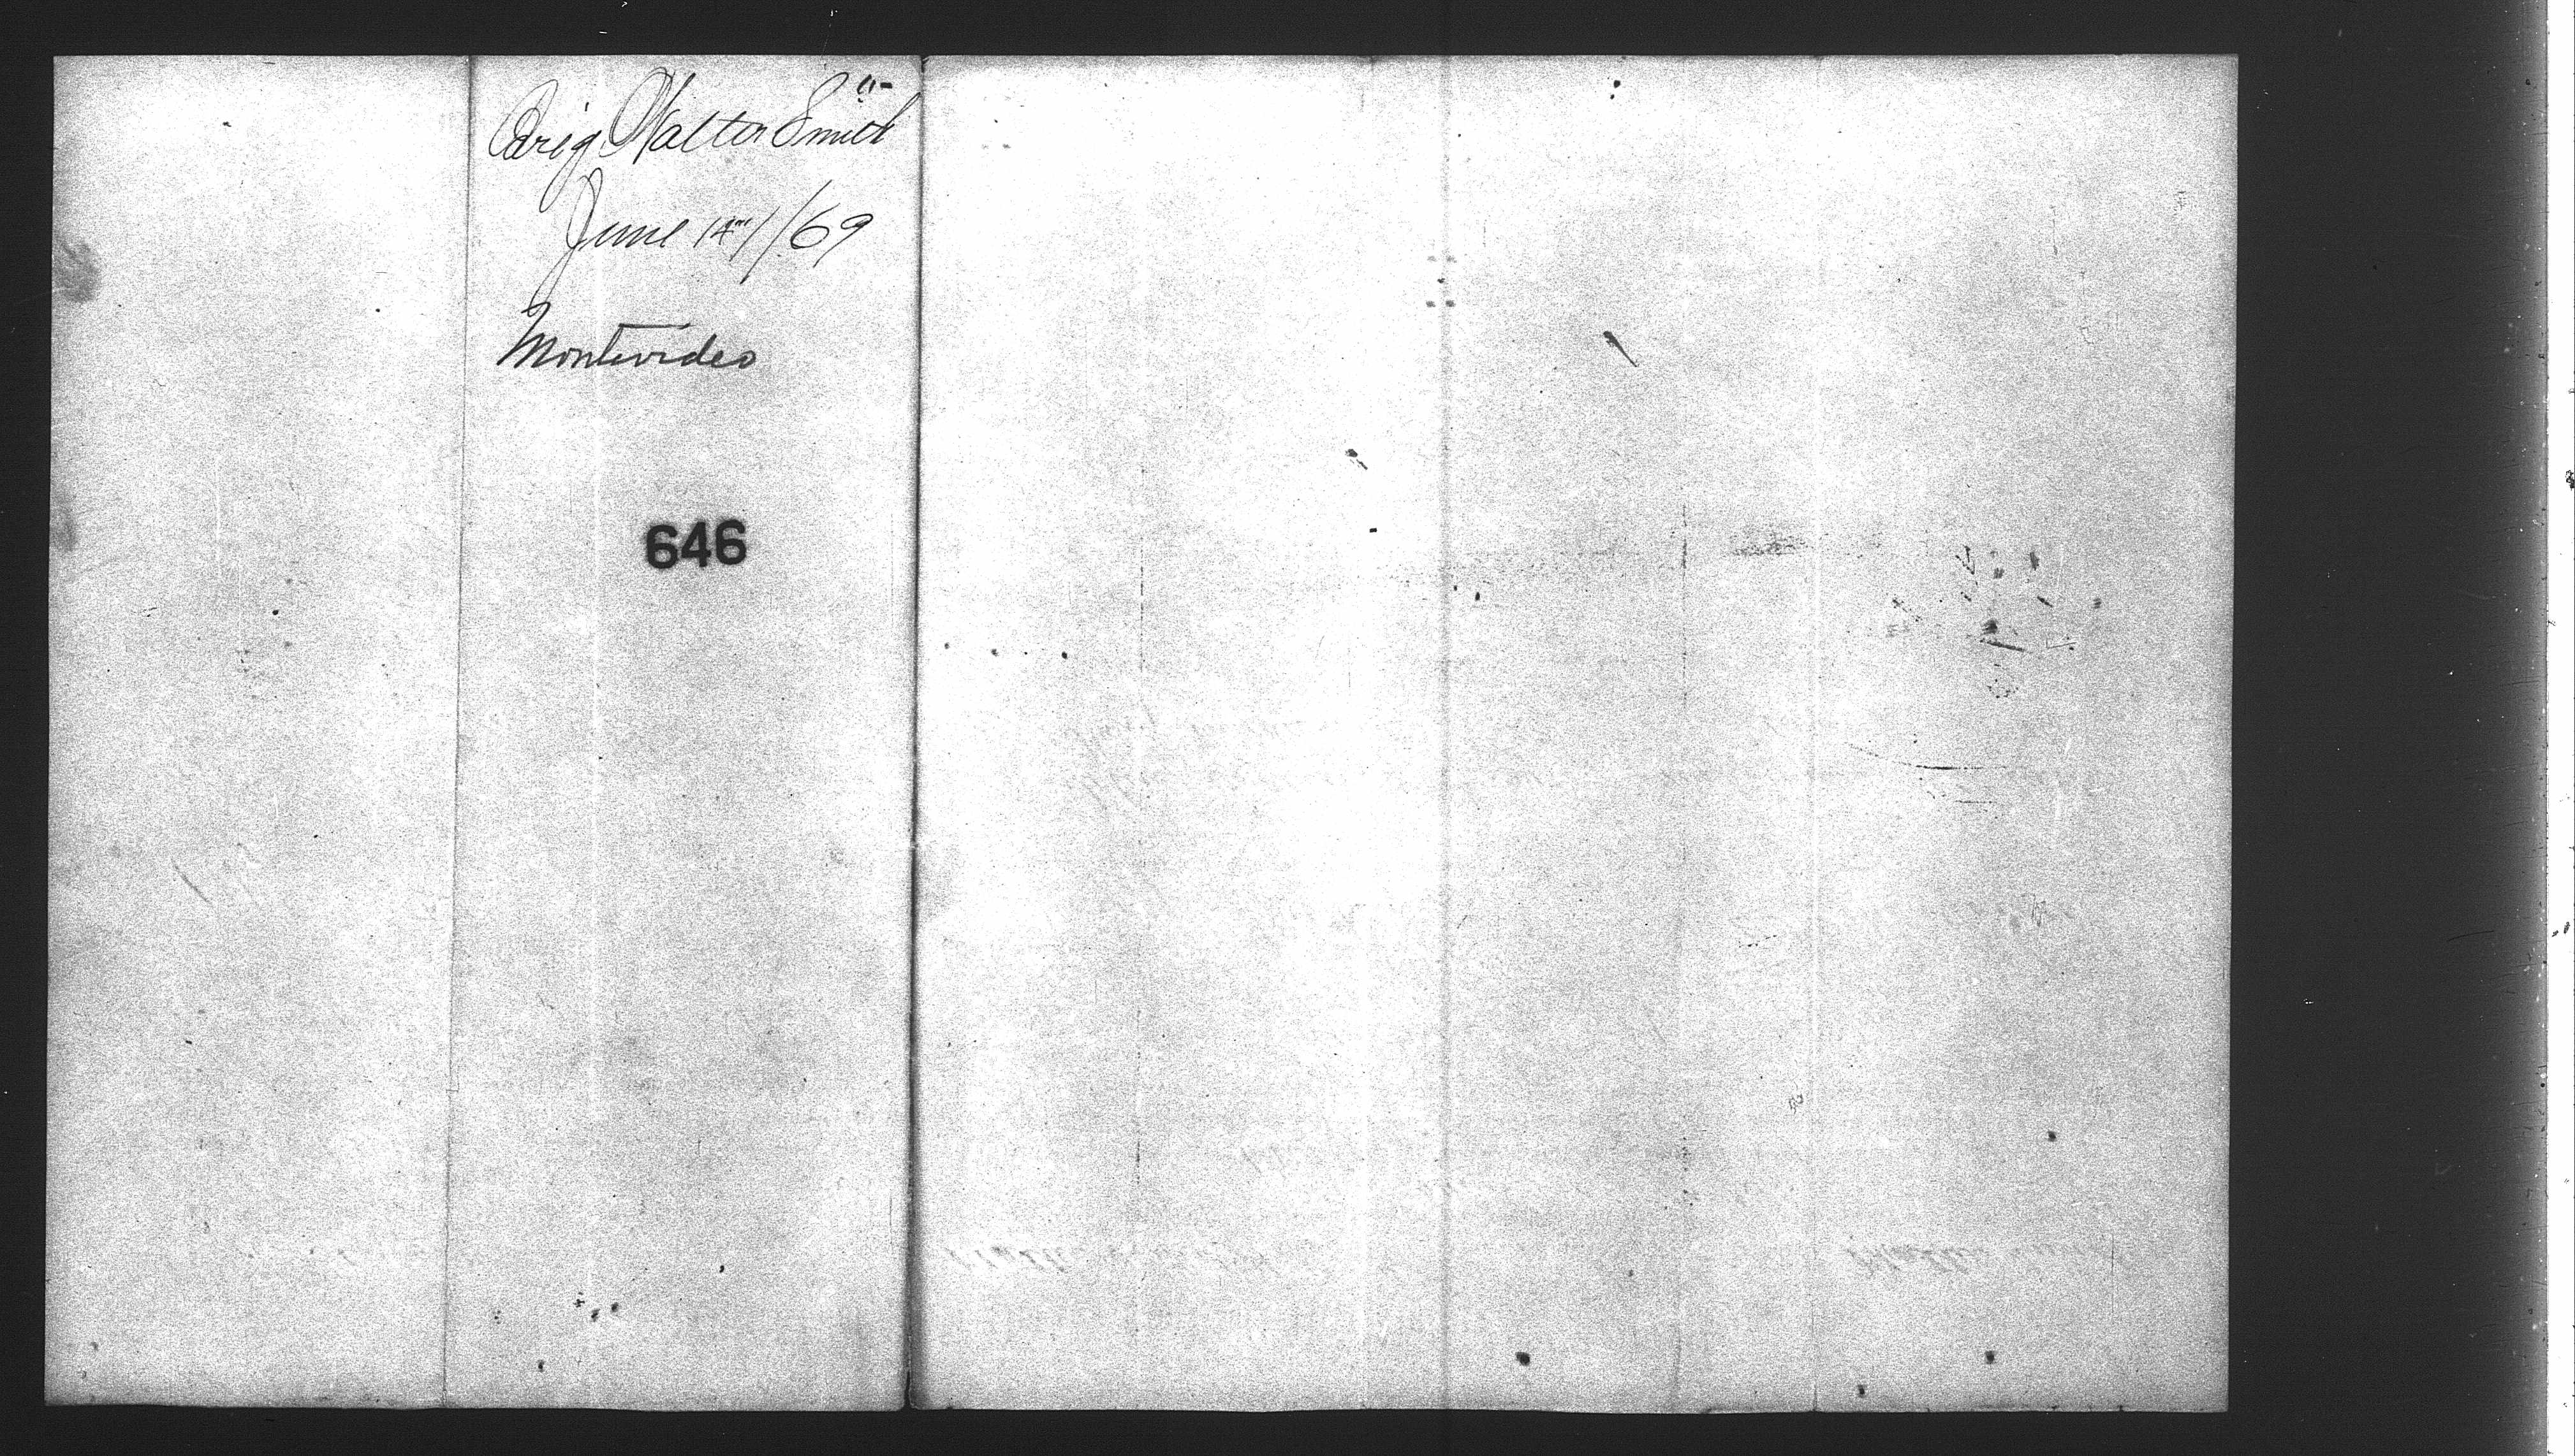 Brig Walter Smith
June 14th/69
Montevideo
646